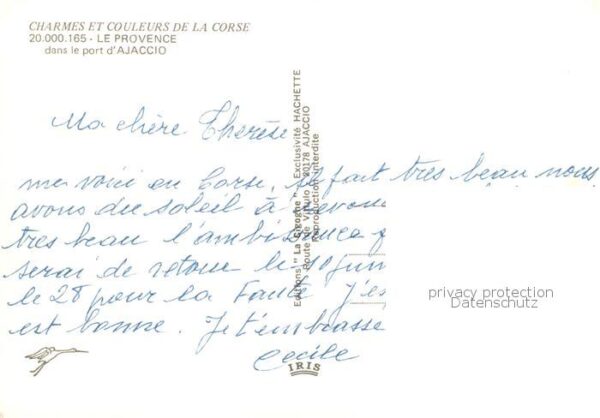 CHARMES ET COULEURS DE LA CORSE
20.000.165 - LE PROVENCE
dans le port d'AJACCIO
Ma chère Thérèse
me voici en Corse, il fait très beau nous
avons du soleil à
très beau l'ambiance
serai de retour le 10 juin
le 28 pour la J'es
est bonne. Je t'embrasse
Cécile
Editions "La Cigogne" - Exclusivité HACHETTE
Route de Vignolo - 20178 AJACCIO
Reproduction interdite
IRIS
privacy protection
Datenschutz